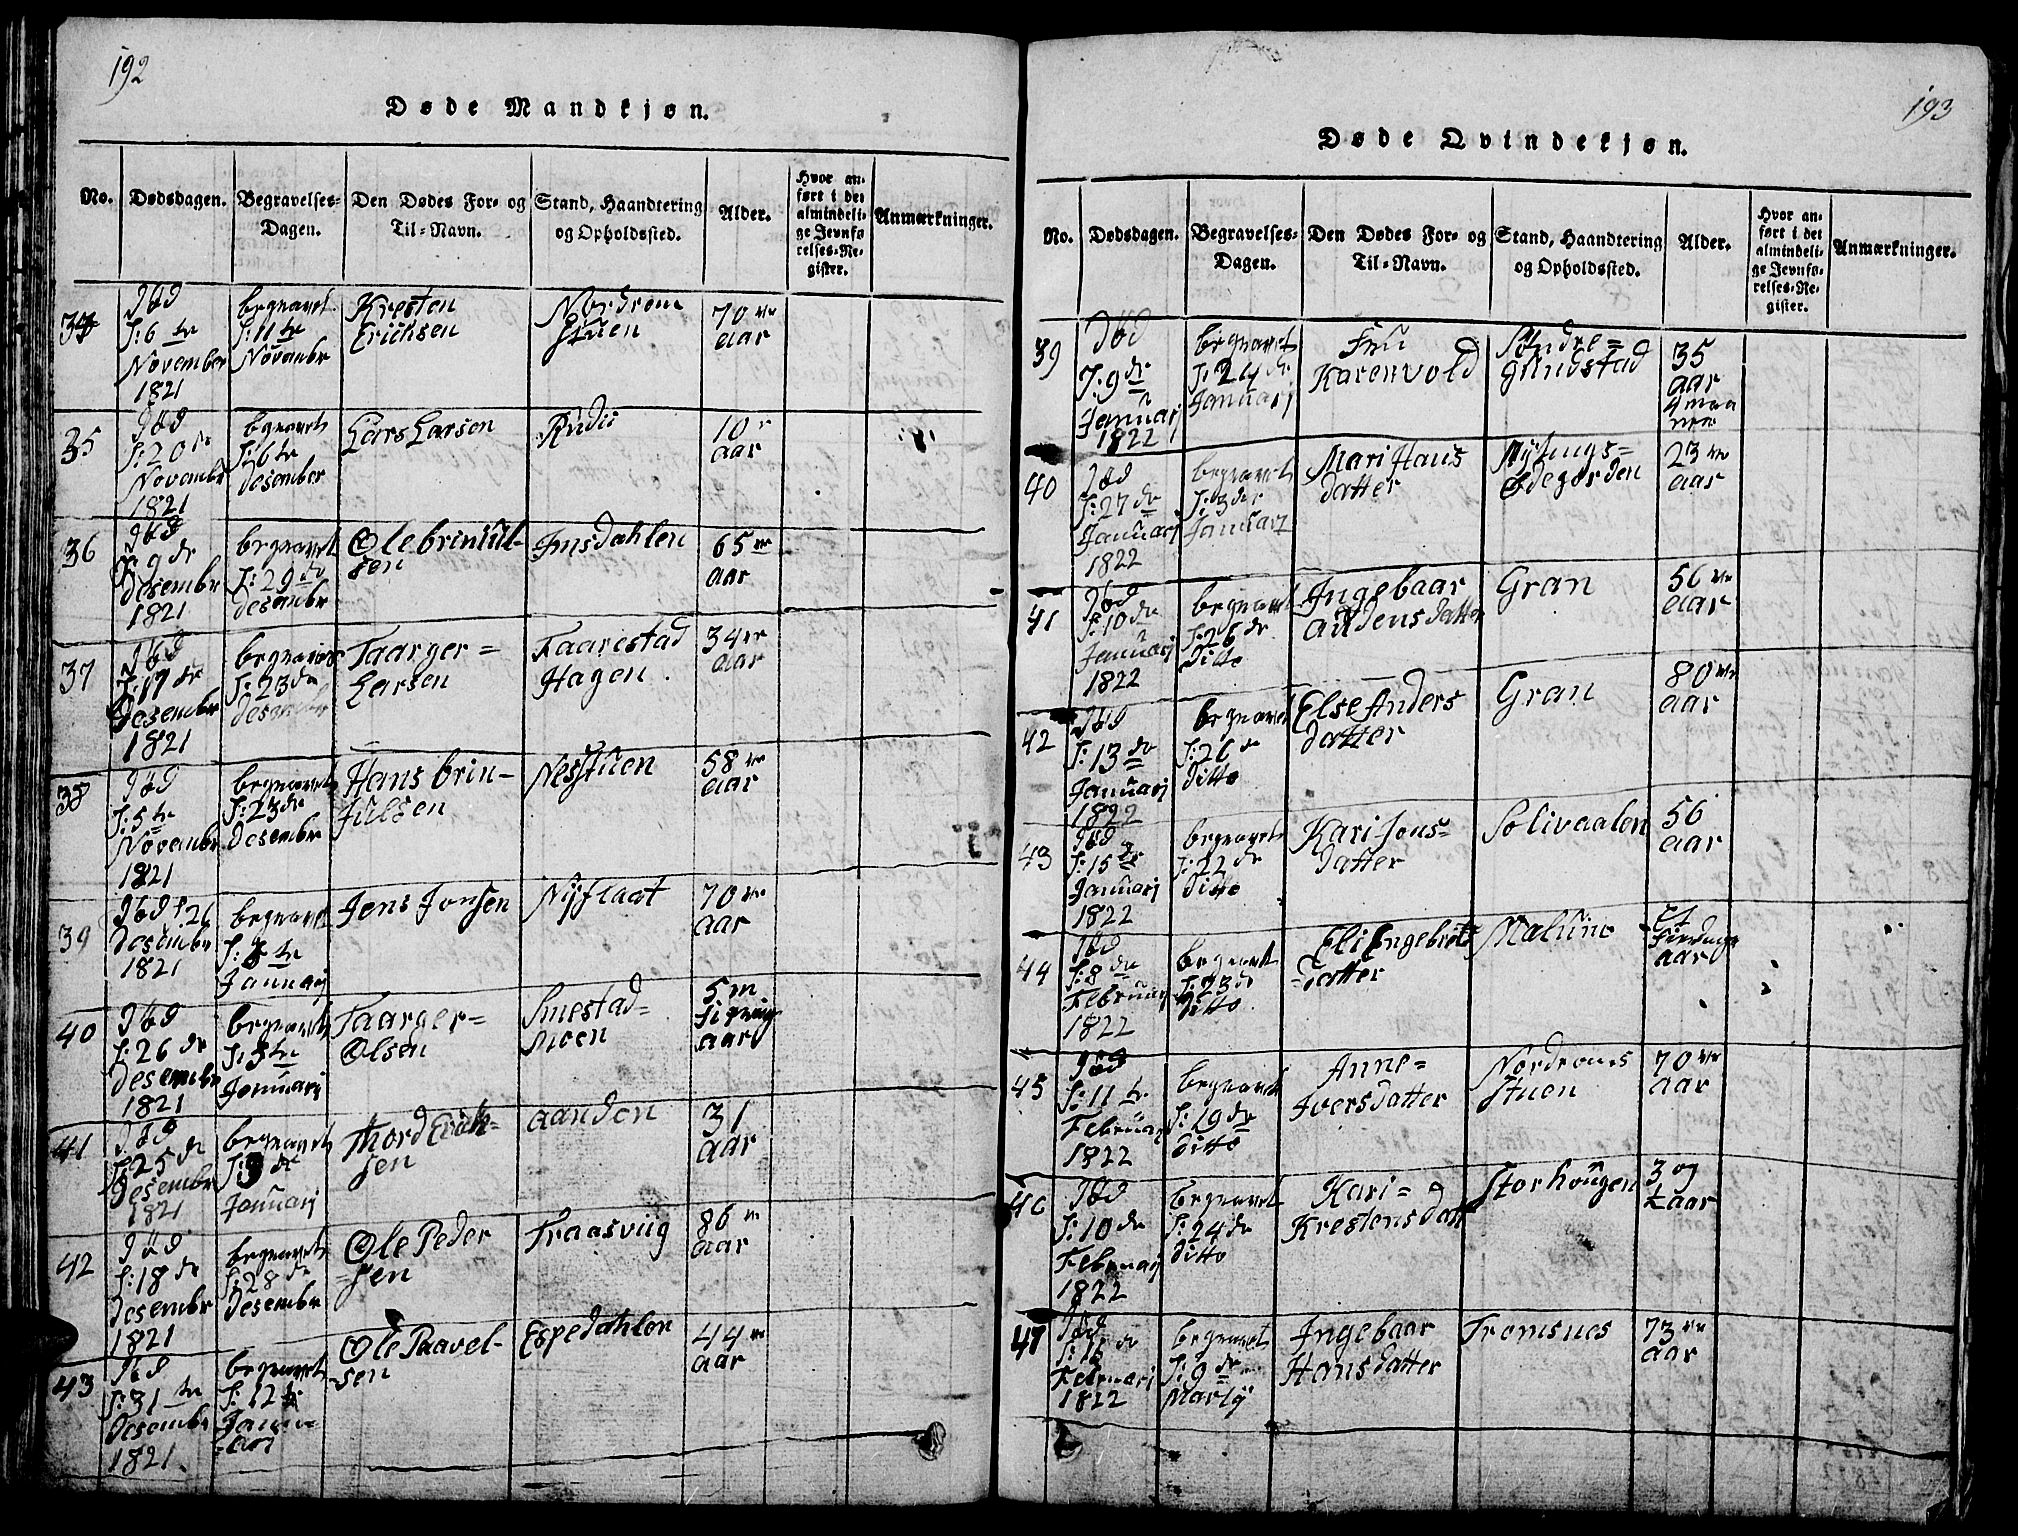 192
Døde Mandkjøn.
No. Dødsdagen. Begravelses-Dagen. Den Dødes For- og Til-Navn. Stand, Haandtering og Opholdssted. Alder. Hvor anført i det almindelige Jevnførelses-Register. Anmærkninger.
34 Død d: 6 te November 1821 begravet d: 11 te Novembr Kresten Erichsen Nordrom Stuen 70 aar
35 Død d: 20 November 1821 begravet d: 6 te desember Lars Larsen Rudii 10 aar
36 Død d 9 de desembr 1821 begravet d: 29 de desembr Ole briniul-sen Imsdahlen 65 aar
37 Død d: 17 de desembr 1821 begravet d: 23 de desembr Taarger= Larsen Faarestad Hagen 34 aar
38 Død d: 5 te Novembr 1821 begravet d: 23 de desembr Hans brin-julsen Nesstuen 58 aar
39 Død d 26 desembr 1821 begravet Januarj Jens Jonsen Nyflaat 70 aar
40 Død d: 26 de desembr 1821 begravet Januarj Taarger= Olsen Smestad- moen aar
41 Død d 25 de desembr 1821 begravet Januarj Thord Erich-sen aanden 31 aar
42 Død d: 18 de desembr 1821 begravet d: 28 de desembr Ole Peder =sen Fraasviig 86 aar
43 Død d: 31 te desembr 1821. begravet d: 12 Janu=ari Ole Paavel-sen Espedahlen 44 aar
193
Døde Qvindekjøn.
No. Dødsdagen. Begravelses-Dagen. Den Dødes For- og Til-Navn. Stand, Haandtering og Opholdssted. Alder. Hvor anført i det almindelige Jevnførelses-Register. Anmærkninger.
39 Død 9 de Januarj 1822 begravet Januarj Fru Karen vold Søndre= Gundstad 35 aar 4 maa
40 Død d: 27 de Januarj 1822 begravet d: 3 de Januarj Mari Hans datter Ødegorden 23 aar
41 Død d: 10 de Januarj 1822 begravet d: 26 de Ditto Ingebaar audensdatter Gran 56 aar
42 Død d: 13 de Januarj 1822 begravet d: 26 de Ditto Else Anders datter Gran 80 aar
43 Død d: 15 de Januarj 1822 begravet d: 22 de Ditto Kari Jons= datter Solivaalen 56 aar
44 Død d: 8 de Februarj 1822 begravet d: 23 de Ditto Eli Engebrets =datter Malumo aar
45 Død d: 11 te Februarj 1822 begravet d: 19 de Ditto Anne= Iversdatter Nordroms Stuen 70 aar
46 Død d: 10 de Februarj 1822 begravet d: 24 de Ditto Kari= Krestensdatt Storhougen 3 og aar
47 Død d: 16 de Februarj 1822 begravet d: 9 de Martij Ingebaar Hansdatter Tromsnes 73 aar